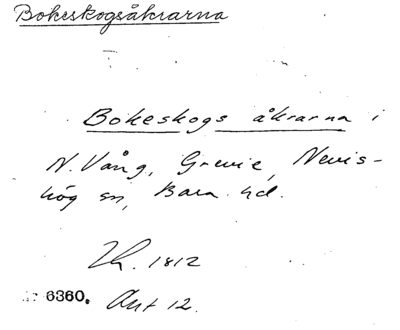 Bokeskogsåkrarna
Bokeskogs åkrarna i
N. Vång, Grevie, Nevis-
hög sn, Bara hd.
1812
6360. Akt 12.